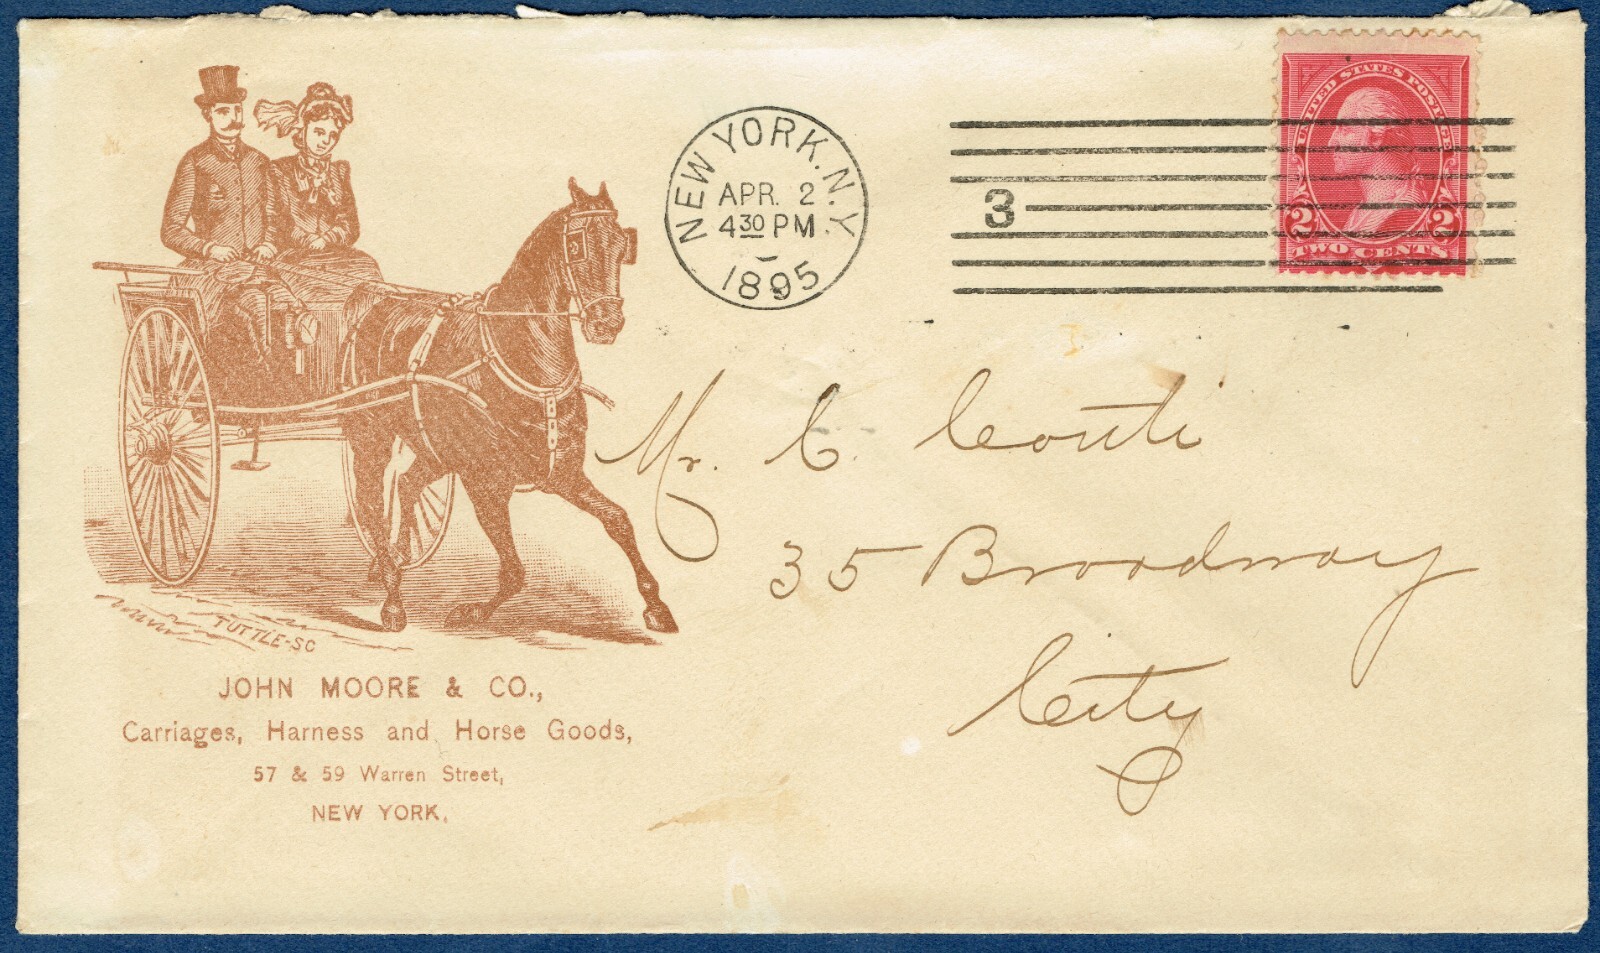 NEW YORK. N.Y.
APR. 2
4 30 PM
1895
3
UNITED STATES POSTAGE
2 2
TWO CENTS
Mr. C. Conti
35 Broadway
City
TUTTLE-SC
JOHN MOORE & CO.,
Carriages, Harness and Horse Goods,
57 & 59 Warren Street,
NEW YORK.